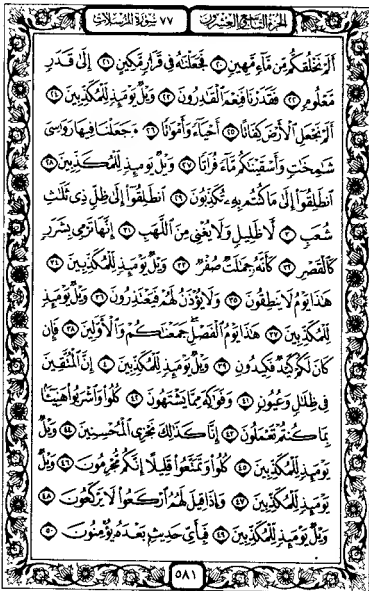 الجزء التاسع والعشرون ٧٧ سورة المرسلات
أَلَمْ نَخْلُقكُّم مِّن مَّاءٍ مَّهِينٍ ٢٠ فَجَعَلْنَٰهُ فِى قَرَارٍ مَّكِينٍ ٢١ إِلَىٰ قَدَرٍ
مَّعْلُومٍ ٢٢ فَقَدَرْنَا فَنِعْمَ الْقَٰدِرُونَ ٢٣ وَيْلٌ يَوْمَئِذٍ لِّلْمُكَذِّبِينَ ٢٤
أَلَمْ نَجْعَلِ الْأَرْضَ كِفَاتًا ٢٥ أَحْيَاءً وَأَمْوَٰتًا ٢٦ وَجَعَلْنَا فِيهَا رَوَٰسِىَ
شَٰمِخَٰتٍ وَأَسْقَيْنَٰكُم مَّاءً فُرَاتًا ٢٧ وَيْلٌ يَوْمَئِذٍ لِّلْمُكَذِّبِينَ ٢٨
انطَلِقُوا إِلَىٰ مَا كُنتُم بِهِ تُكَذِّبُونَ ٢٩ انطَلِقُوا إِلَىٰ ظِلٍّ ذِى ثَلَٰثِ
شُعَبٍ ٣٠ لَّا ظَلِيلٍ وَلَا يُغْنِى مِنَ اللَّهَبِ ٣١ إِنَّهَا تَرْمِى بِشَرَرٍ
كَالْقَصْرِ ٣٢ كَأَنَّهُ جِمَٰلَتٌ صُفْرٌ ٣٣ وَيْلٌ يَوْمَئِذٍ لِّلْمُكَذِّبِينَ ٣٤
هَٰذَا يَوْمُ لَا يَنطِقُونَ ٣٥ وَلَا يُؤْذَنُ لَهُمْ فَيَعْتَذِرُونَ ٣٦ وَيْلٌ يَوْمَئِذٍ
لِّلْمُكَذِّبِينَ ٣٧ هَٰذَا يَوْمُ الْفَصْلِ جَمَعْنَٰكُمْ وَالْأَوَّلِينَ ٣٨ فَإِن
كَانَ لَكُمْ كَيْدٌ فَكِيدُونِ ٣٩ وَيْلٌ يَوْمَئِذٍ لِّلْمُكَذِّبِينَ ٤٠ إِنَّ الْمُتَّقِينَ
فِى ظِلَٰلٍ وَعُيُونٍ ٤١ وَفَوَٰكِهَ مِمَّا يَشْتَهُونَ ٤٢ كُلُوا وَاشْرَبُوا هَنِيئًا
بِمَا كُنتُمْ تَعْمَلُونَ ٤٣ إِنَّا كَذَٰلِكَ نَجْزِى الْمُحْسِنِينَ ٤٤ وَيْلٌ
يَوْمَئِذٍ لِّلْمُكَذِّبِينَ ٤٥ كُلُوا وَتَمَتَّعُوا قَلِيلًا إِنَّكُم مُّجْرِمُونَ ٤٦ وَيْلٌ
يَوْمَئِذٍ لِّلْمُكَذِّبِينَ ٤٧ وَإِذَا قِيلَ لَهُمُ ارْكَعُوا لَا يَرْكَعُونَ ٤٨
وَيْلٌ يَوْمَئِذٍ لِّلْمُكَذِّبِينَ ٤٩ فَبِأَىِّ حَدِيثٍ بَعْدَهُ يُؤْمِنُونَ ٥٠
٥٨١